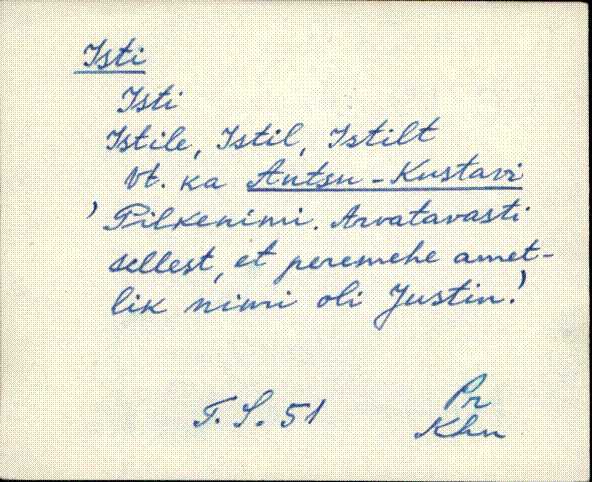 Isti
Isti
Istile, Istil, Istilt
Vt. ka Antsu-Kustavi
' Pilkenimi. Arvatavasti
sellest, et peremehe amet-
lik nimi oli Justin.'
F. S. 51
Pr
Khn